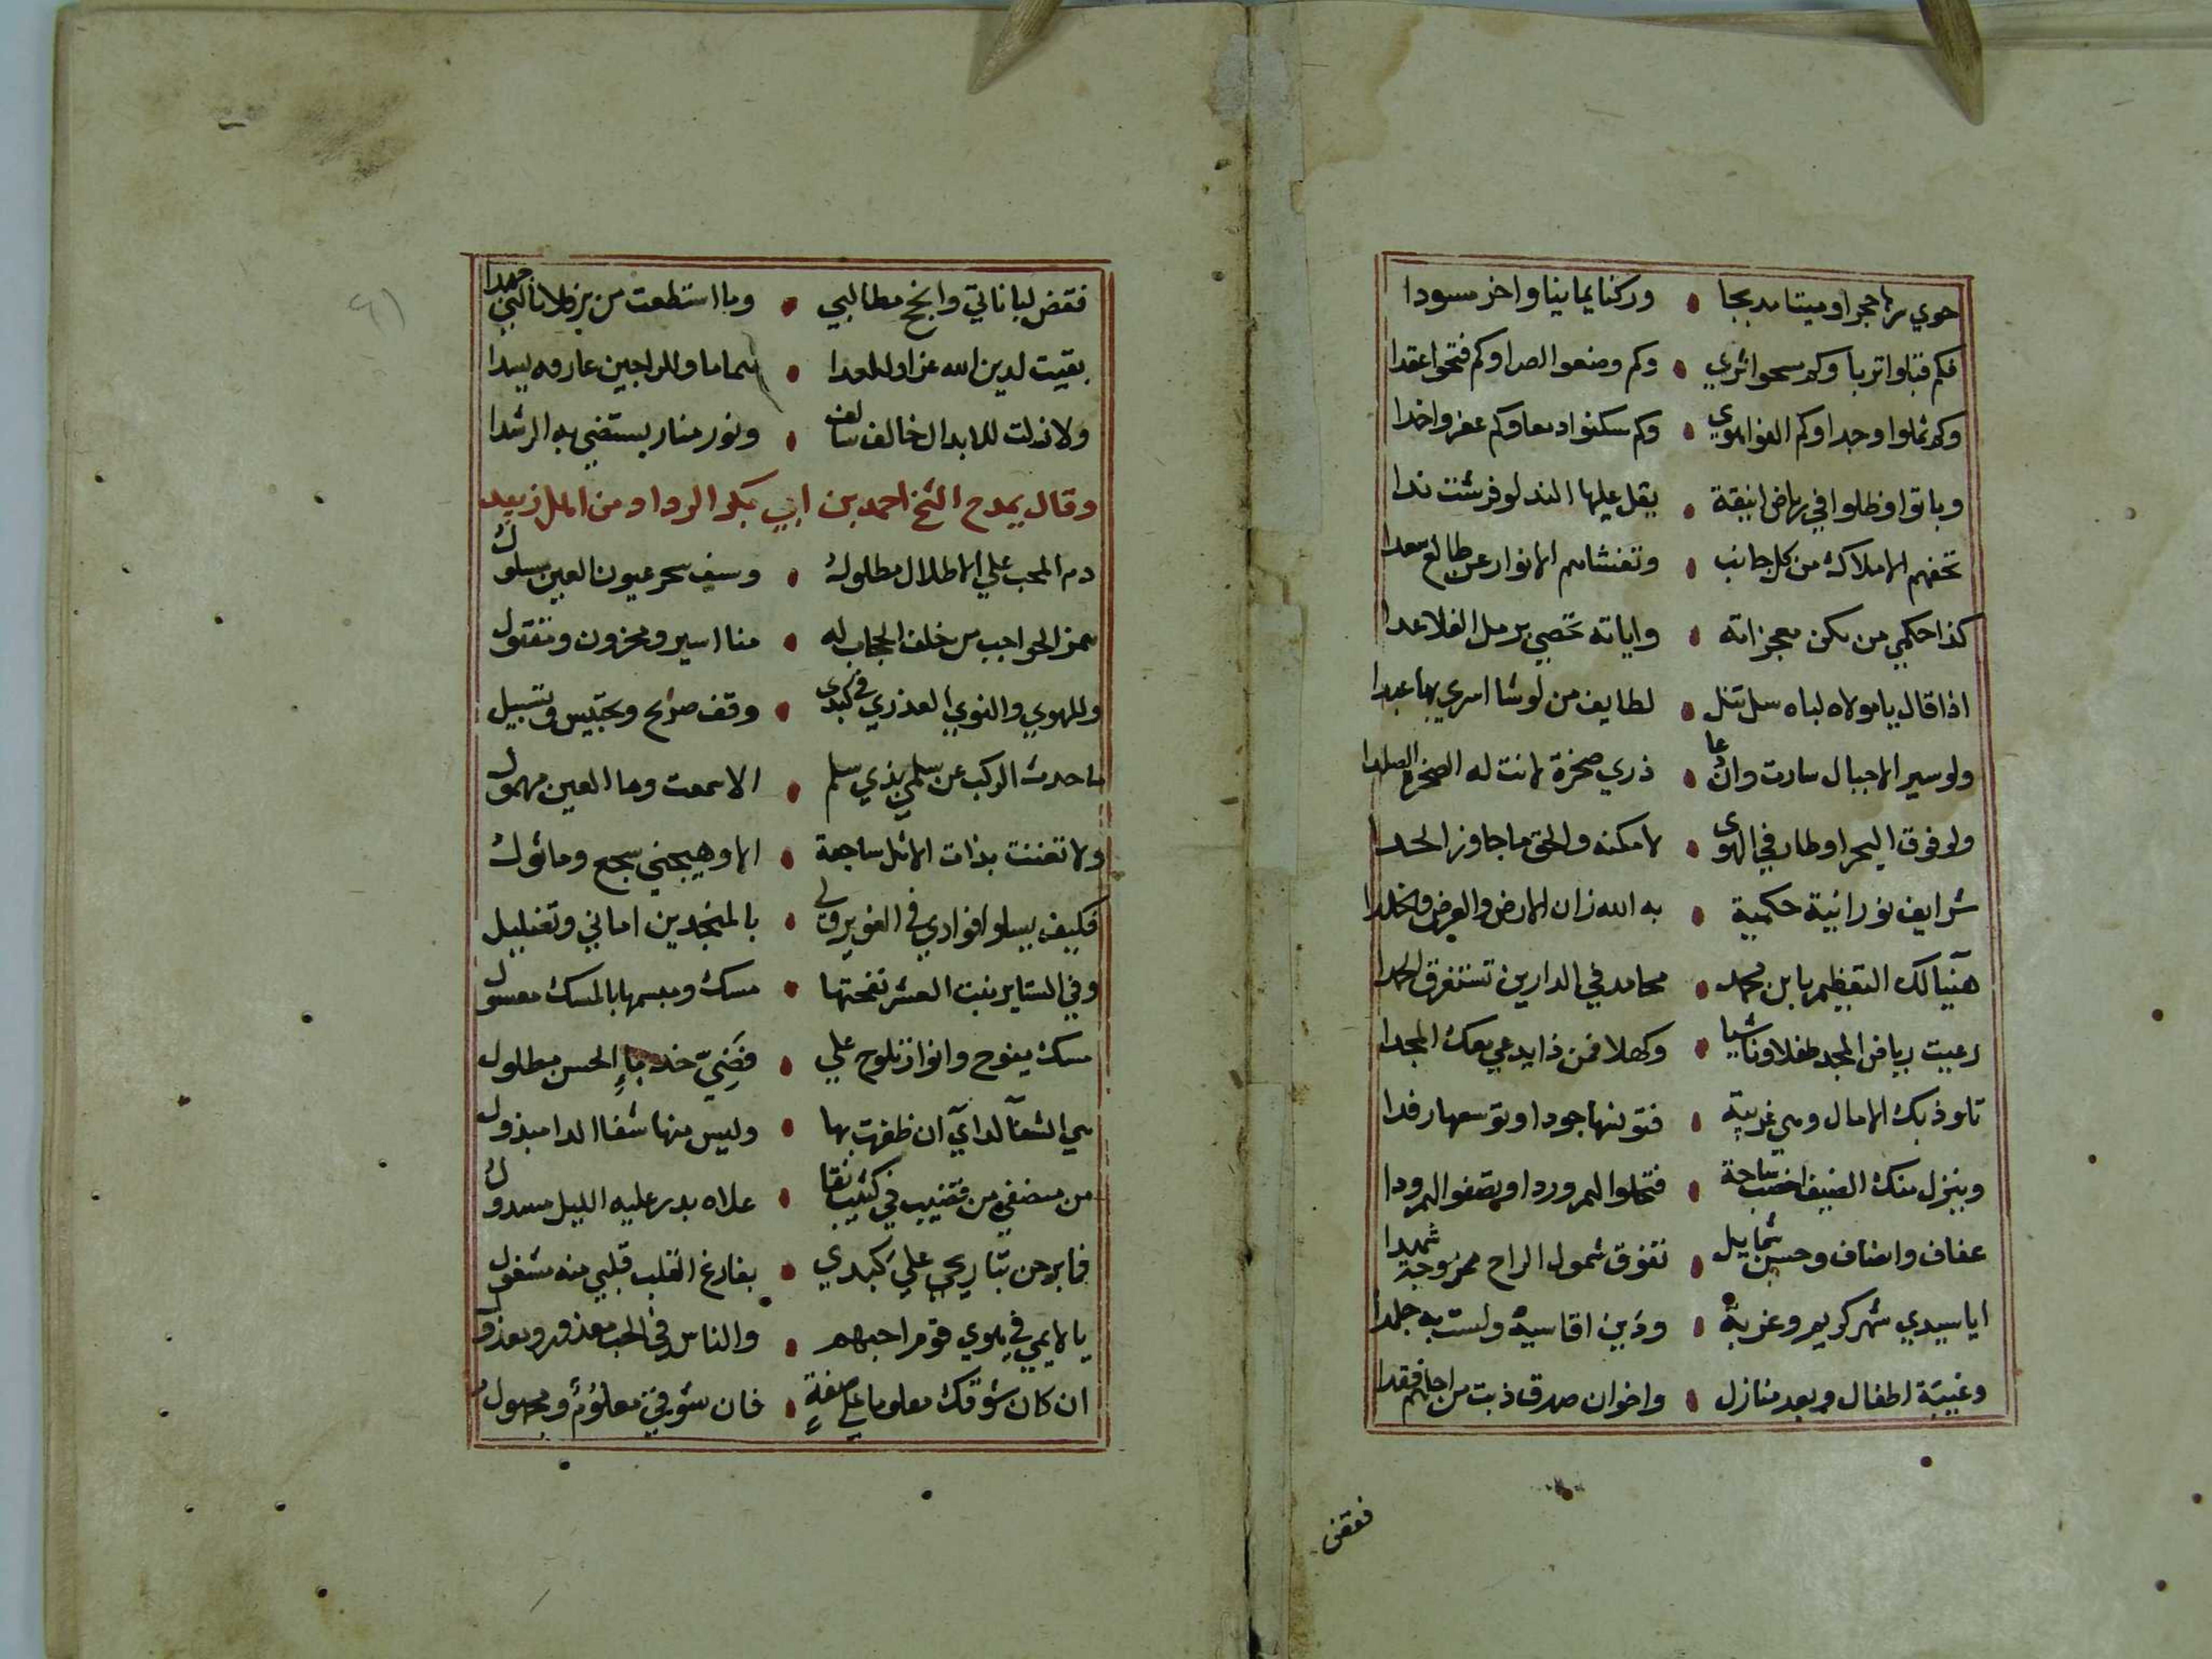 حوي حجرا وميتا مدبجا • وركنا يمانيا واخر مسودا
فكم قبلوا تربا وكم سحوا ثري • وكم وضعوا اصرا وكم فتحوا عقدا
وكم ثملوا وجدا وكم الفوا هوي • وكم سكنوا دمعا وكم عفروا خدا
وباتوا وظلوا في رياض انيقة • يقل عليها الند لو فرشت ندا
تحفهم الاملاك من كل جانب • وتغشاهم الانوار عن طالع سعدا
كذا حكمي من يكن معجزاته • واياته تحصي برمل الفلا عدا
اذا قال يا مولاه لباه سل تنل • لطايف من لو شا اسري بها عبدا
ولو سير الاجبال سارت وان عا • ذري صخرة لانت له الصخرة الصلدا
ولو فوق البحر او طار في الهوى • لامكنه والحق ما جاوز الحدا
شرايف نورانية حكمية • به الله زان الارض والعرض والخلدا
هنيا لك التعظيم يا بن محمد • محامد في الدارين تستغرق الحمدا
رعيت رياض المجد طفلا وناشيا • وكهلا فمن ذا يدعي معك المجدا
تلوذ بك الامال وهي غريبة • فتولنها جودا وتوسعها رفدا
وينزل منك الضيف اخصب ساحة • فتحلوا لهم وردا وتصفوا لهم ودا
عفاف وانصاف وحسن شمايل • تفوق شمول الراح ممزوجة شهدا
ايا سيدي شهر كريم وغربة • ودين اقاسيه ولست به جلدا
وغيبة اطفال وبعد منازل • واخوان صدق ذبت من اجلهم فقدا
فقض
فقض لباناتي وانجح مطالبي • وما استطعت من بر فلا تالني جهدا
بقيت لدين الله عزا وللهدا • سماما وللراجين عارفه ليدا
ولا زلت للابدال خالف سالف • ونور منار يستضي به الرشدا
وقال يمدح الشيخ احمد بن ابي بكر الرداد من اهل زبيد
دم المحب علي الاطلال مطلول • وسيف سحر عيون العين مسلول
همز الحواجب من خلف الحجاب له • منا اسير ومحزون ومقتول
وللهوي والنوي العذري في كبدى • وقف صرايح وتحبيس وتسبيل
ما حدث الركب عن سلمي بذي سلم • الا سمعت وما العين مهمول
ولا تغننت بذات الاثل ساجعة • الا وهيجني سجع وماثول
فكيف يسلوا فوادي في الغوير ولى • بالمنجدين اماني وتعليل
وفي الستاير بنت العشر نفحتها • مسك ومبسمها بالمسك معسول
مسك يفوح وانوار تلوح علي • فضي خد بماء الحسن مطلول
هي الشفا لداي ان ظفرت بها • وليس منها شفا الدا مبذول
من منصفي من قضيب في كثيب نقا • علاه بدر عليه الليل مسدول
فما برحن تباريحي علي كبدي • بفارغ القلب قلبي منه مشغول
يا لايمي في هوي قوم احبهم • والناس في الحب معذور ومعذول
ان كان شوقك معلوما علي صفة • فان شوقي معلوم ومجهول